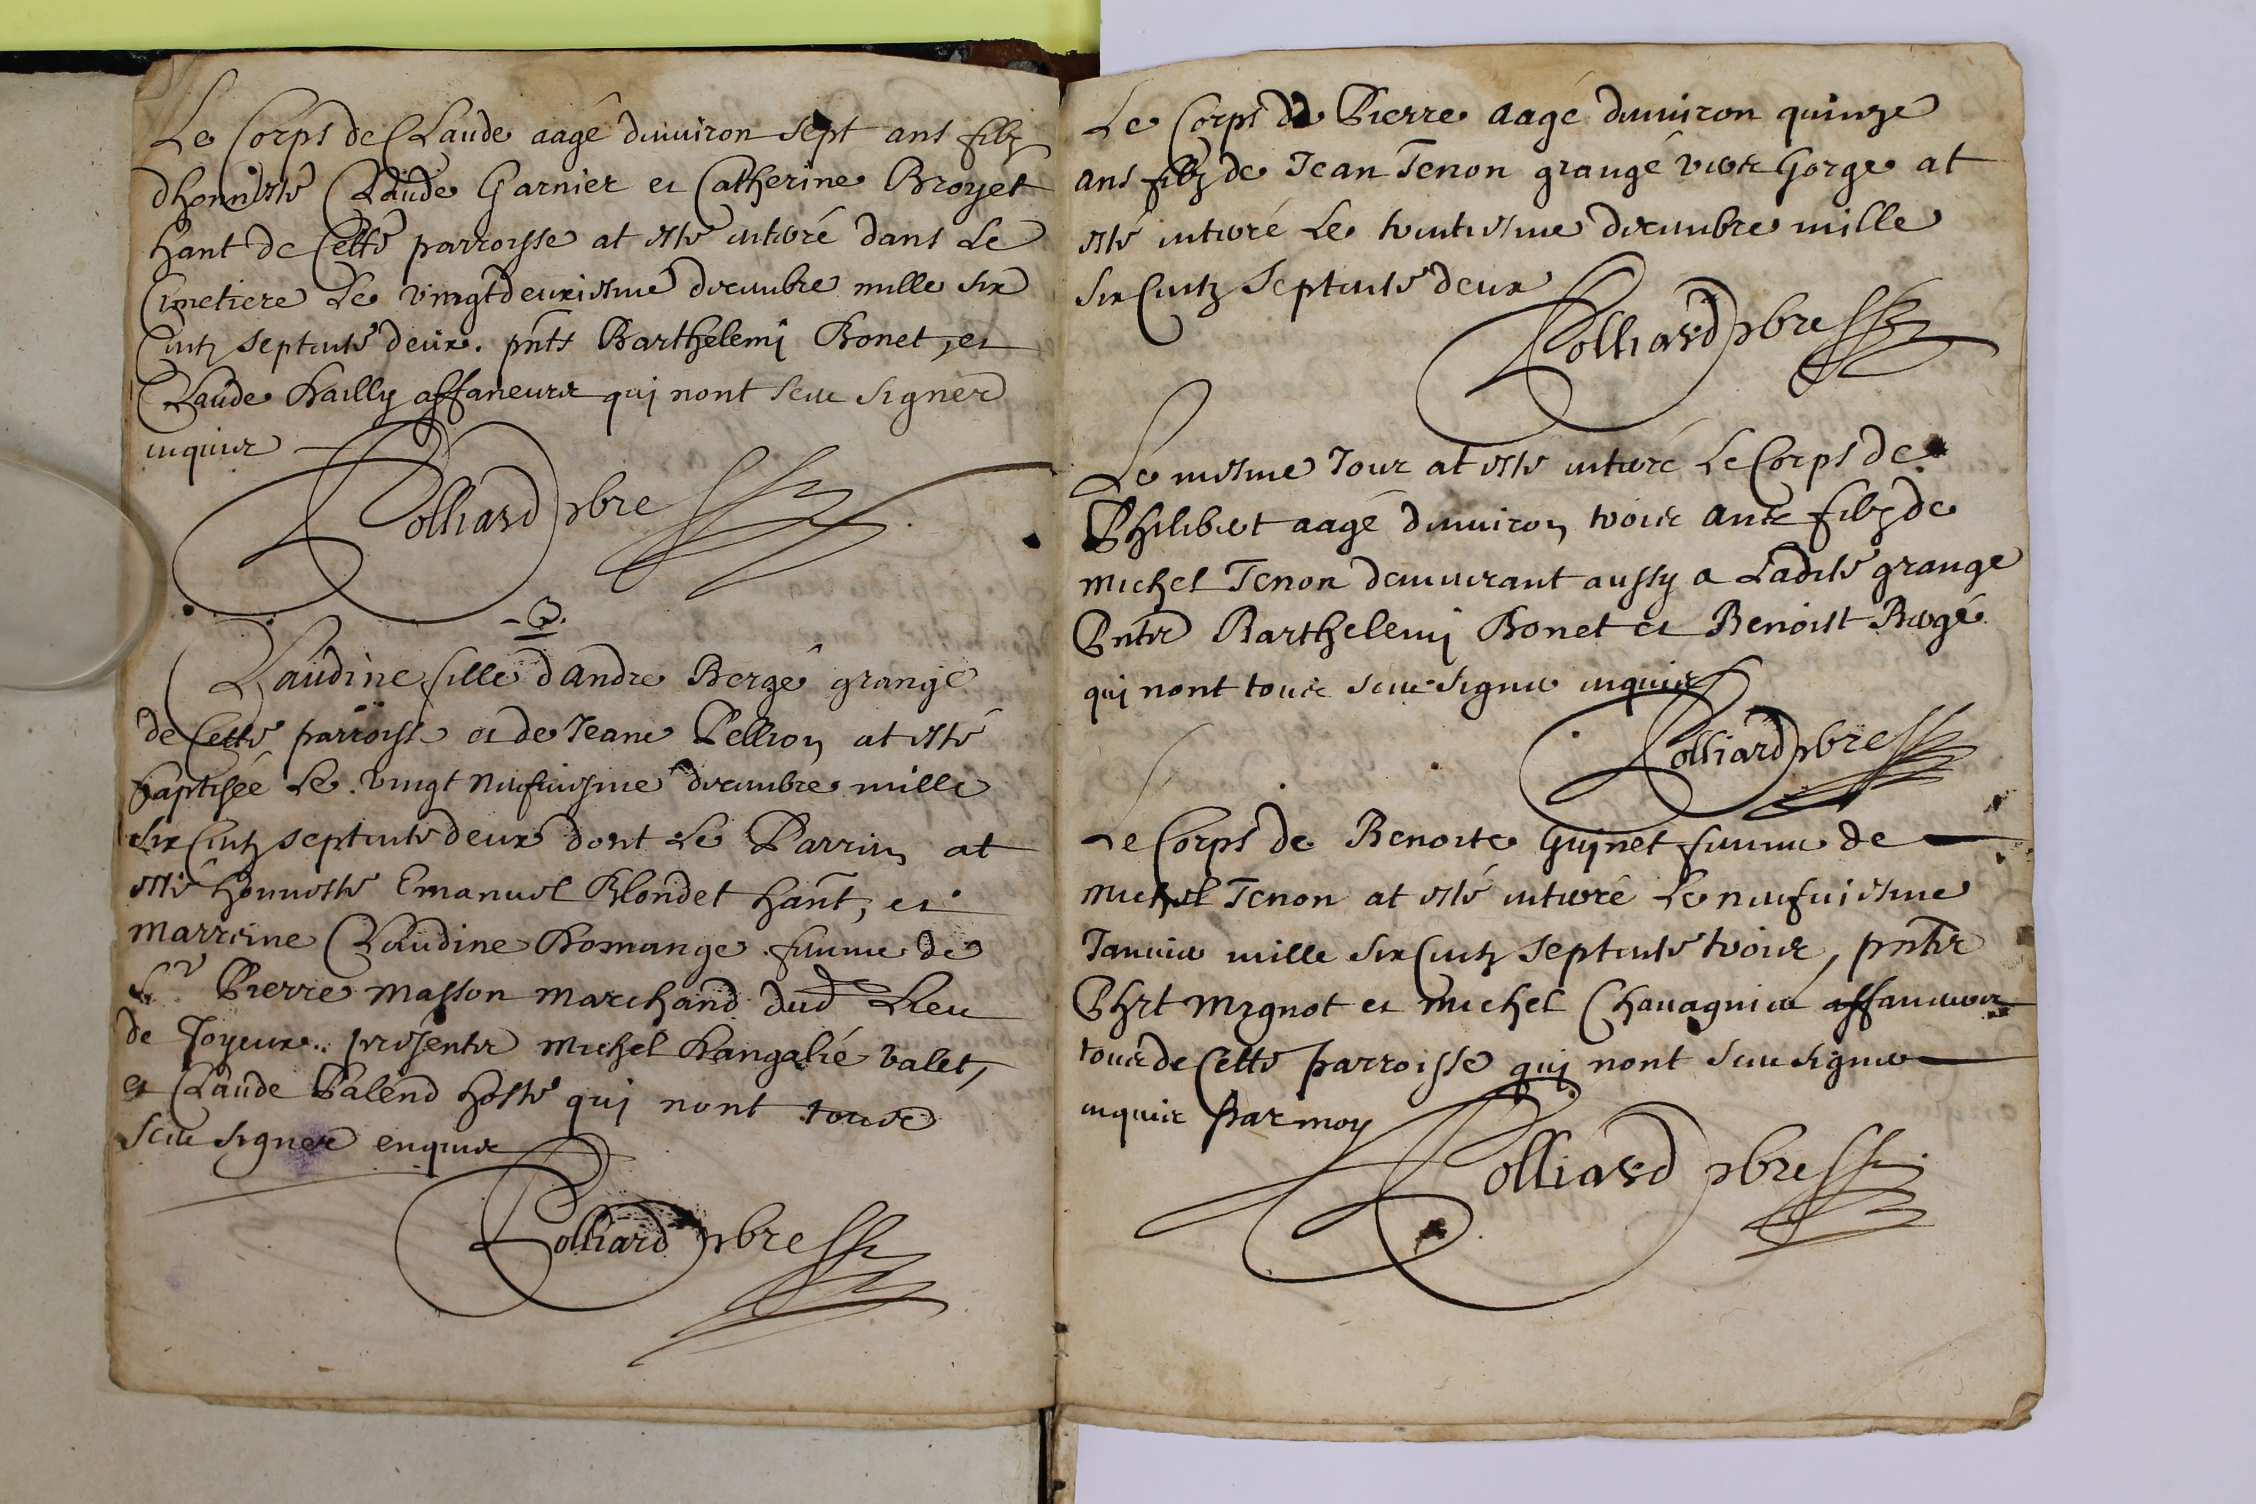 Le Corps de Claude aagé denuiron sept ans filz
dhonneste Claude Garnier et Catherine Broyet
hant de Cette parroisse at esté enterré dans Le
Cimetiere Le vingtdeuxiesme decembre mille six
Centz septente deux. pnts Barthelemj Bonet, et
Claude Bailly affaneurs qui nont sceu signer
enquis
Rolliard pbre
-B.
Claudine fille dandre Bergé grangé
de Cette parroisse et de Jeane Pellion at esté
baptisée Le vingt neufuiesme decembre mille
six Centz septente deux dont Le Parrin at
esté honneste Emanuel Blondet hant, et
marreine Claudine Bomange femme de
Sr Pierre masson marchand dud Lieu
de Joyeux.. presentes Michel Bangalié valet,
et Claude Palend hoste qui nont tous
sceu signer enquis
Rolliard pbre
Le Corps de Pierre aagé denuiron quinze
ans filz de Jean Tenon grangé vers Gorge at
esté enterré Le trentiesme decembre mille
six Centz septente deux
Rolliard pbre
Le mesme Jour at esté enterré Le Corps de
Philibert aagé denuiron trois ans filz de
michel Tenon demeurant aussy a Ladite grange
Pntes Barthelemj Bonet et Benoist Bergé
qui nont tous sceu signer enquis
Rolliard pbre
Le Corps de Benoite Guinet femme de
michel Tenon at esté enterré Le neufuiesme
Januier mille six Centz septente trois, pntes
Phrt Mignot et michel Chauagnier affaneurs
tous de Cette parroisse qui nont sceu signer
enquis par moy
Rolliard pbre